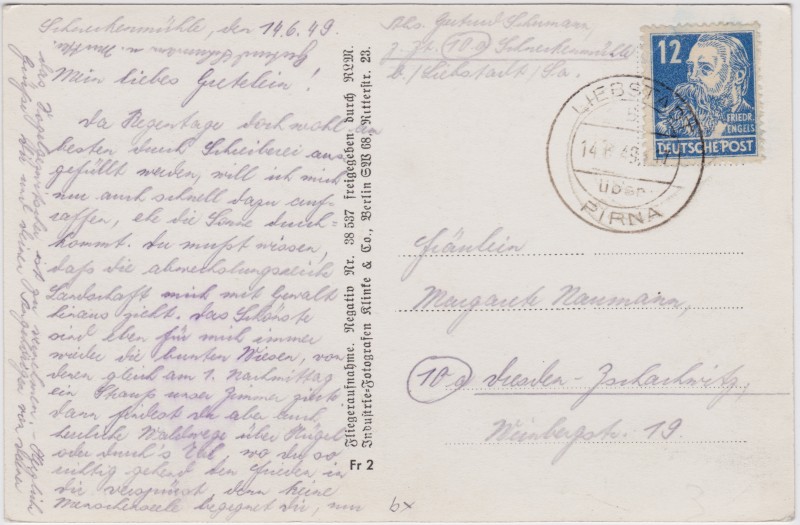 Schneckenmühle, den 14.6.49.
Mein liebes Gretelein!
Da Regentage doch wohl am
besten durch Schreiberei aus-
gefüllt werden, will ich mich
nun auch schnell dazu auf-
raffen, ehe die Sonne durch-
kommt. Du mußt wissen,
daß die abwechslungsreiche
Landschaft mich mit Gewalt
hinaus zieht. Das Schönste
sind eben für mich immer
wieder die bunten Wiesen, von
deren gleich am 1. Nachmittag
ein Strauß unser Zimmer ziert.
Dann findest du aber auch
herrliche Waldwege über Hügel
oder durch's Tal, wo du so
richtig gehend den Frieden in
die verspürst, denn keine
Menschenseele begegnet dir, nur
das Vogelgezwitscher ist zu vernehmen. - Herzlich
Grüße dir und deiner
Gertrud Schumann u. Mutti.
Fliegeraufnahme. Negativ Nr. 38 537 freigegeben durch RLM.
Industrie-Fotografen Klinke & Co., Berlin SW 68, Ritterstr. 23.
Fr 2
Abs. Gertrud Schumann,
z. Zt. (10a) Schneckenmühle
b/Liebstadt/Sa.
12
FRIEDR.
ENGELS
DEUTSCHE POST
LIEBSTADT
14. 6. 49
über
PIRNA
Fräulein
Margarete Naumann,
(10a) Dresden-Zschachwitz,
Weinbergstr. 19.
bx